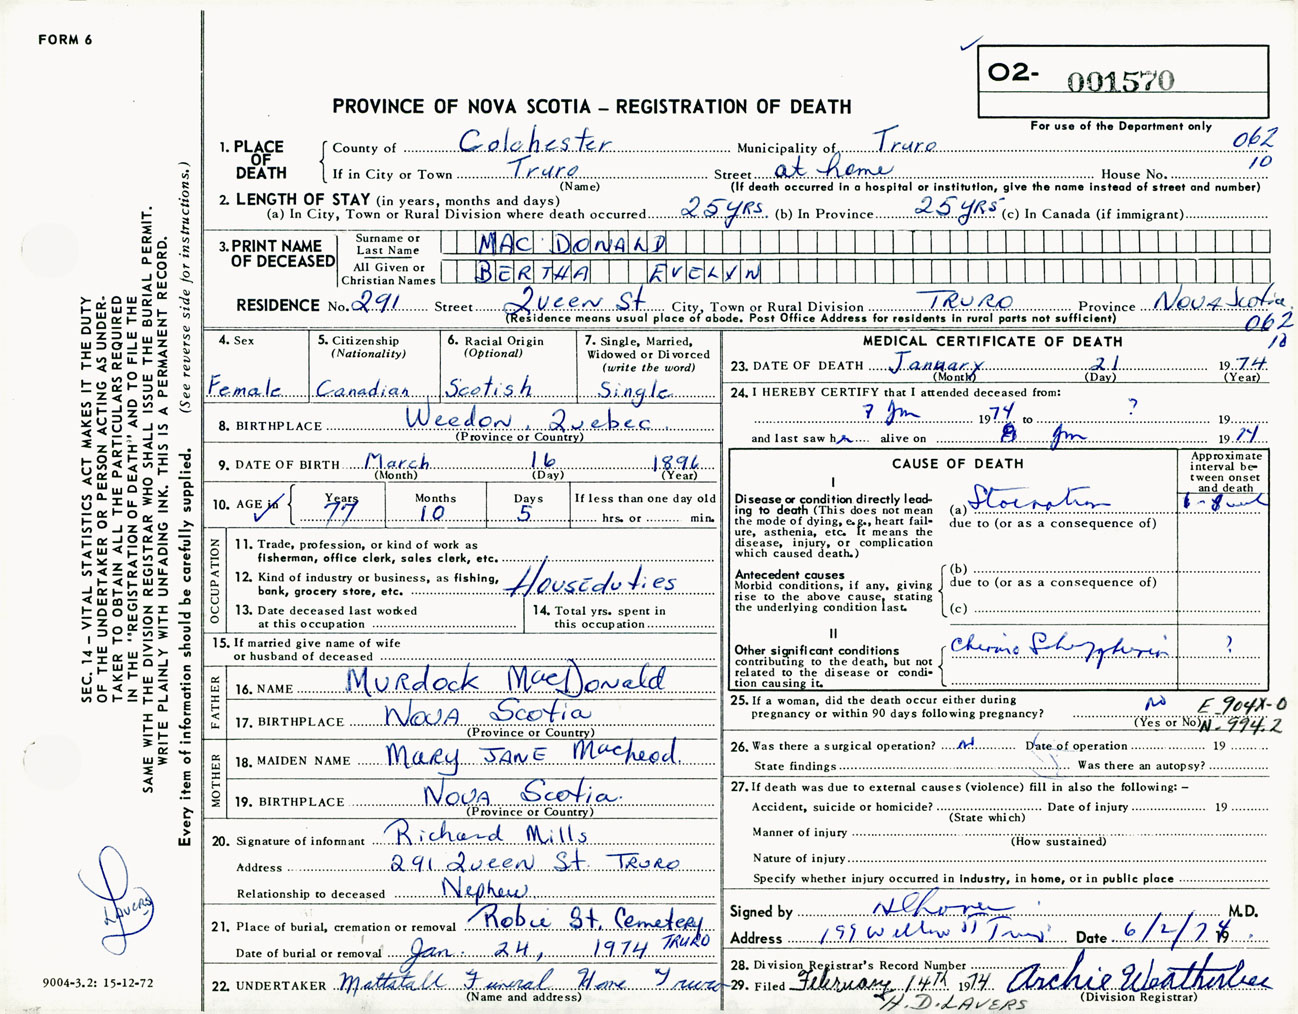 FORM 6
O2- 001570
PROVINCE OF NOVA SCOTIA – REGISTRATION OF DEATH
For use of the Department only
062
10
1. PLACE OF DEATH
County of Colchester Municipality of Truro
If in City or Town Truro Street at home House No.
(Name) (If death occurred in a hospital or institution, give the name instead of street and number)
2. LENGTH OF STAY (in years, months and days)
(a) In City, Town or Rural Division where death occurred 25 YRS. (b) In Province 25 YRS (c) In Canada (if immigrant)
3. PRINT NAME OF DECEASED
Surname or Last Name MAC DONALD
All Given or Christian Names BERTHA EVELYN
RESIDENCE No. 291 Street Queen St City, Town or Rural Division TRURO Province NOVA Scotia
(Residence means usual place of abode. Post Office Address for residents in rural parts not sufficient)
062
10
4. Sex Female
5. Citizenship (Nationality) Canadian
6. Racial Origin (Optional) Scotish
7. Single, Married, Widowed or Divorced (write the word) Single
8. BIRTHPLACE Weedon, Quebec
(Province or Country)
9. DATE OF BIRTH March 16 1896
(Month) (Day) (Year)
10. AGE in Years 77 Months 10 Days 5 If less than one day old hrs. or min.
OCCUPATION
11. Trade, profession, or kind of work as fisherman, office clerk, sales clerk, etc.
12. Kind of industry or business, as fishing, bank, grocery store, etc. Houseduties
13. Date deceased last worked at this occupation
14. Total yrs. spent in this occupation
15. If married give name of wife or husband of deceased
FATHER
16. NAME MURDOCK MacDonald
17. BIRTHPLACE NOVA Scotia
(Province or Country)
MOTHER
18. MAIDEN NAME MARY JANE Macleod
19. BIRTHPLACE NOVA Scotia.
(Province or Country)
20. Signature of informant Richard Mills
Address 291 Queen St. TRURO
Relationship to deceased Nephew
21. Place of burial, cremation or removal Robie St. Cemetery TRURO
Date of burial or removal Jan. 24, 1974
22. UNDERTAKER Mattatall Funeral Home Truro
(Name and address)
MEDICAL CERTIFICATE OF DEATH
23. DATE OF DEATH January 21 1974
(Month) (Day) (Year)
24. I HEREBY CERTIFY that I attended deceased from:
7 Jan 1974 to ? 19
and last saw her alive on 8 Jan 1974
CAUSE OF DEATH
Approximate interval between onset and death
I
Disease or condition directly leading to death (This does not mean the mode of dying, e.g., heart failure, asthenia, etc. It means the disease, injury, or complication which caused death.)
(a) Starvation
due to (or as a consequence of)
Antecedent causes
Morbid conditions, if any, giving rise to the above cause, stating the underlying condition last.
(b)
due to (or as a consequence of)
(c)
II
Other significant conditions contributing to the death, but not related to the disease or condition causing it.
Chronic Schizophrenia ?
25. If a woman, did the death occur either during pregnancy or within 90 days following pregnancy? No
(Yes or No)
E-904X-0
N-994.2
26. Was there a surgical operation? No Date of operation 19
State findings Was there an autopsy?
27. If death was due to external causes (violence) fill in also the following: –
Accident, suicide or homicide? Date of injury 19
(State which)
Manner of injury
(How sustained)
Nature of injury
Specify whether injury occurred in industry, in home, or in public place
Signed by M.D.
Address 199 Willow St Truro Date 6/2/74 19
28. Division Registrar's Record Number
29. Filed February 14TH 1974 Archie Weatherbee
(Division Registrar)
H.D. LAVERS
SEC. 14 – VITAL STATISTICS ACT MAKES IT THE DUTY
OF THE UNDERTAKER OR PERSON ACTING AS UNDER-
TAKER TO OBTAIN ALL THE PARTICULARS REQUIRED
IN THE "REGISTRATION OF DEATH" AND TO FILE THE
SAME WITH THE DIVISION REGISTRAR WHO SHALL ISSUE THE BURIAL PERMIT.
WRITE PLAINLY WITH UNFADING INK. THIS IS A PERMANENT RECORD.
Every item of information should be carefully supplied. (See reverse side for instructions.)
LAVERS
9004-3.2: 15-12-72